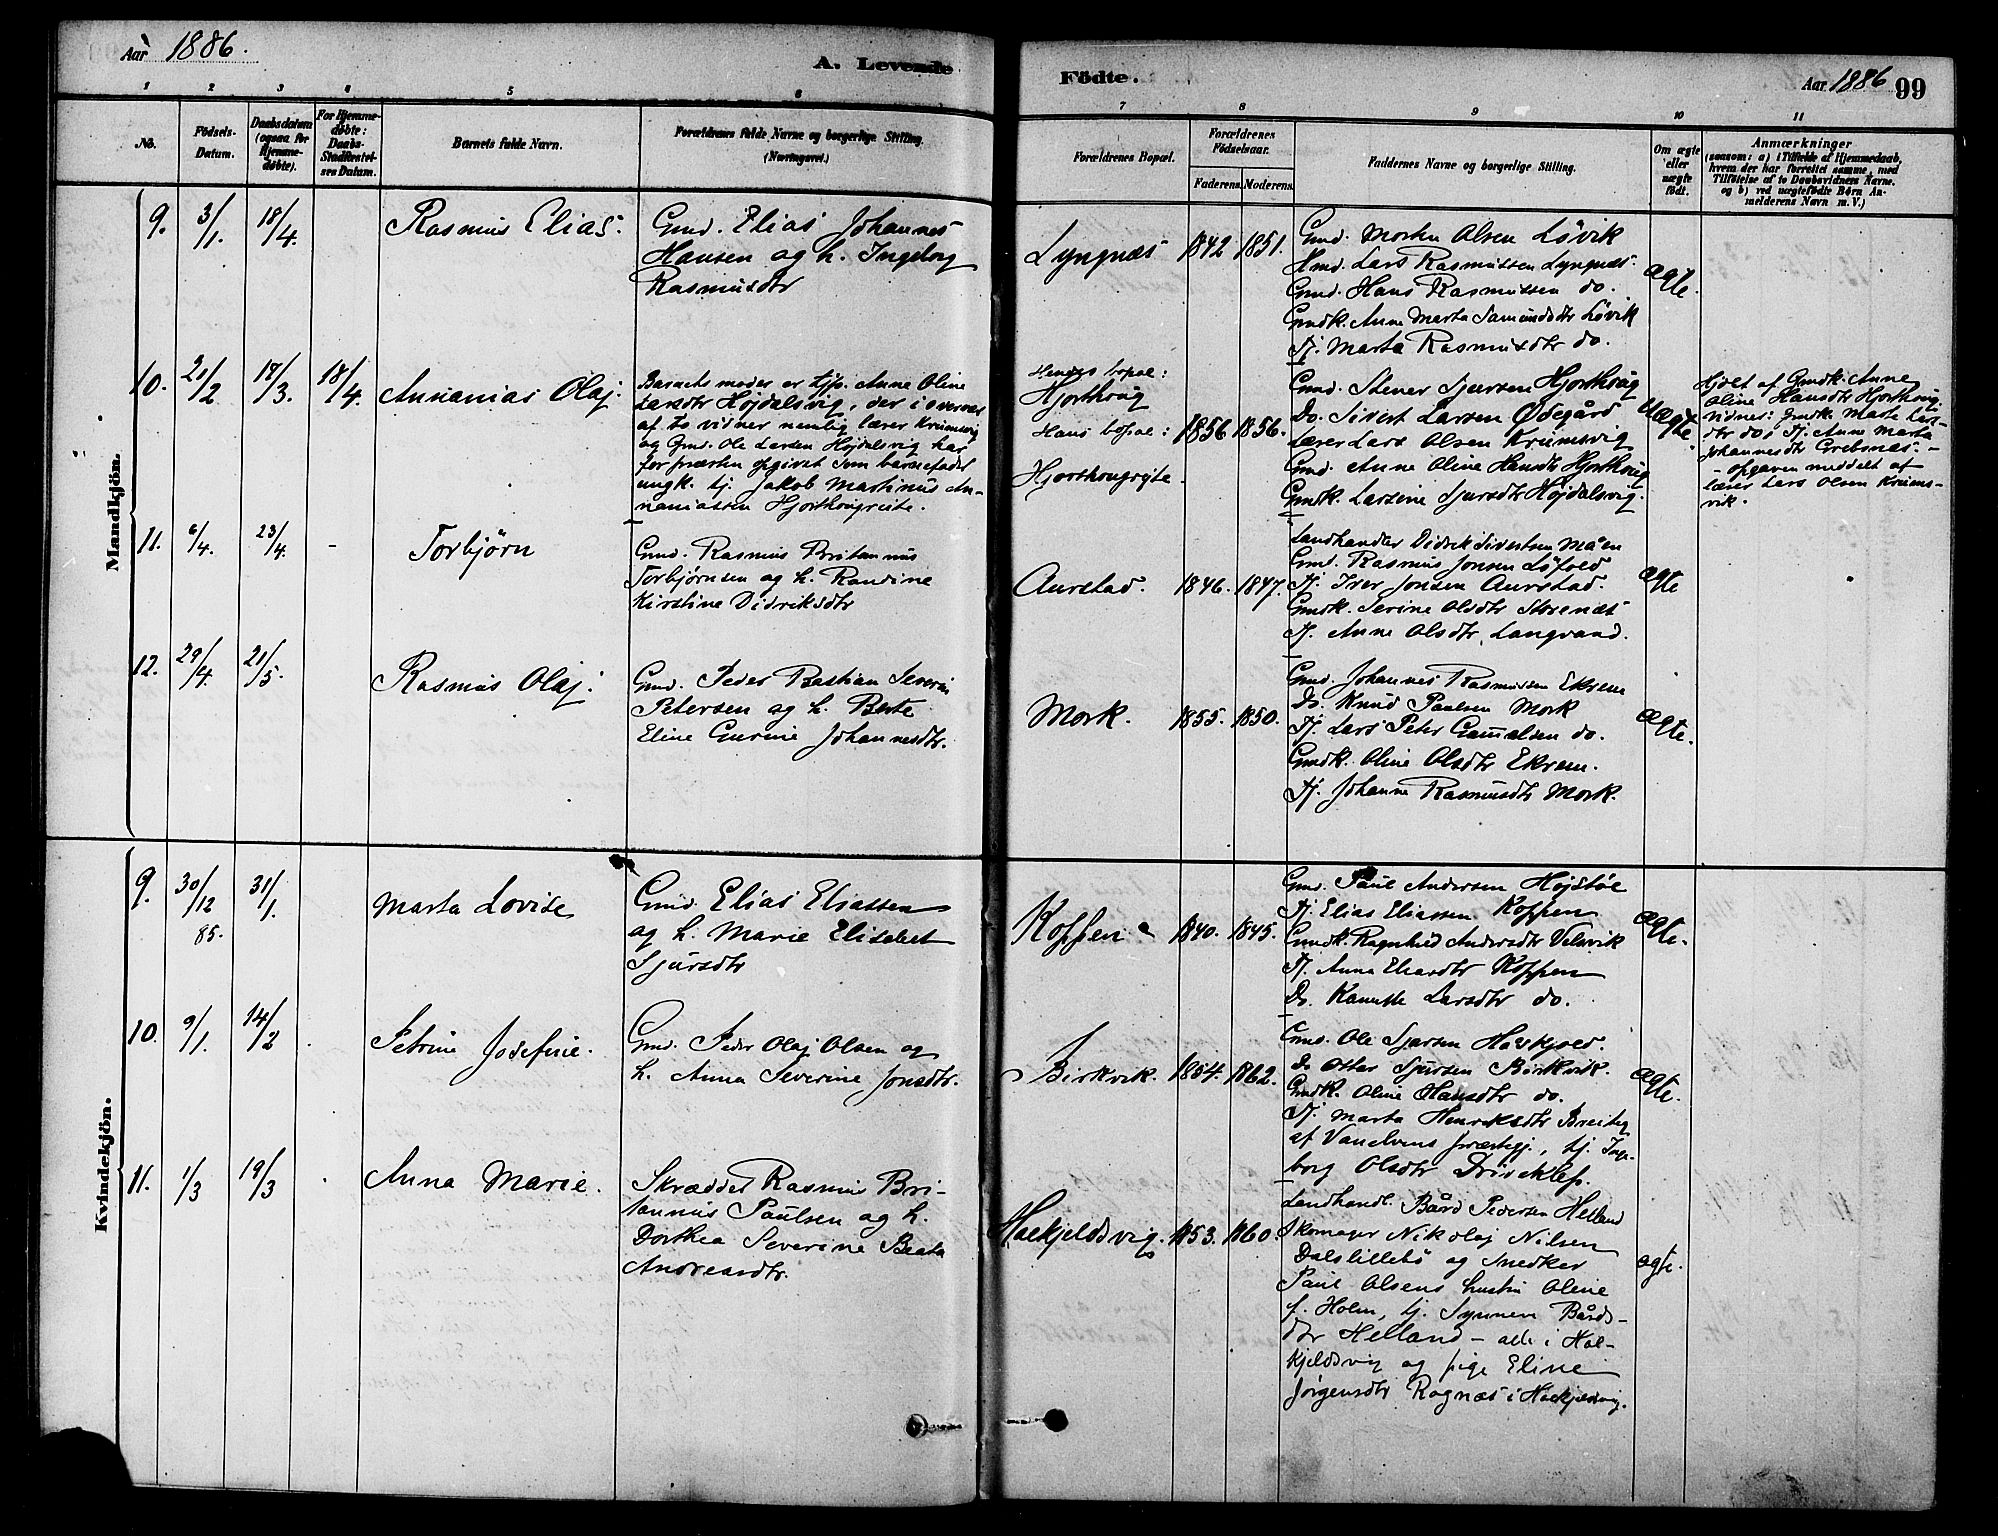 Aar 1886.
A. Levende
Födte.
Aar 1886
99
1 2 3 4 5 6 7 8 9 10 11
No.
Födsels-
Datum.
Daabsdatum
(ogsaa for
Hjemme-
døbte).
For Hjemme-
døbte:
Daabs-
Stadfæstel-
ses Datum.
Barnets fulde Navn.
Forældrenes fulde Navne og borgerlige Stilling.
(Næringsvei.)
Forældrenes Bopæl.
Forældrenes
Födselsaar.
Faderens. Moderens.
Faddernes Navne og borgerlige Stilling.
Om ægte
eller
uægte
født.
Anmærkninger
(saasom: a) i Tilfælde af Hjemmedaab,
hvem der har forrettet samme, med
Tilføielse af to Daabsvidners Navne,
og b) ved uægtefødte Børn An-
melderens Navn m. V.)
Mandkjön.
9. 3/1. 18/4. Rasmus Elias.
Gmd. Elias Johannes
Hansen og h. Ingeborg
Rasmusdtr
Lyngnæs 1842 1851.
Gmd. Morten Olsen Løvik
Hmd. Lars Rasmussen Lyngnæs.
Gmd. Hans Rasmussen do.
Gmdk. Anne Marta Samundsdtr Løvik
Tj. Marta Rasmusdtr do.
ægte.
10. 21/2 17/3. 18/4. Annanias Olaj.
Barnets moder er tjp. Anne Oline
Larsdtr Højdalsvig, der i overvær
af to vidner nemlig lærer Krumsvig
og Gmd. Ole Larsen Højdalsvig har
for præsten opgivet som barnefader
ungk. tj. Jakob Martinus An-
naniassen Hjorthougryte.
Hendes bopæl:
Hjorthoug
Hans bopæl:
Hjorthougryte.
1856 1856.
Gmd. Stener Sjursen Hjorthoug
Do. Sivert Larsen Ødegård
Lærer Lars Olsen Krumsvig
Gmd. Anne Oline Hansdtr Hjorthoug
Gmdk. Larsine Sjursdtr Højdalsvig.
uægte.
Hjdbt af Gmdk. Anne
Oline Hansdtr Hjorthoug.
Vidner: Gmdk. Marte Lars-
dtr do, Tj. Anne Marta
Johannesdtr Grebsnæs. -
- opgaven meddelt af
lærer Lars Olsen Krums-
vik.
11. 6/4. 23/4. - Torbjørn
Gmd. Rasmus Britannus
Torbjørnsen og h. Randine
Kirstine Didriksdtr
Aurstad. 1846. 1847.
Landhandler Didrik Sivertsen Måen
Gmd. Rasmus Jonsen Løfold
Tj. Iver Jonsen Aurstad.
Gmdk. Serine Olsdtr Storenæs
Tj. Anne Olsdtr. Langvand.
ægte
12. 29/4. 21/5. Rasmus Olaj.
Gmd. Peder Bastian Severin
Petersen og h. Berte
Eline Gurine Johannesdtr.
Mork. 1855. 1850.
Gmd. Johannes Rasmussen Ekrem
Do. Knud Paulsen Mork
Tj. Lars Peter Gammelsen do.
Gmdk. Oline Olsdtr Ekrem.
Tj. Johanne Rasmusdtr Mork.
ægte.
Kvindekjön.
9. 30/12 85. 31/1. Marta Lovise
Gmd. Elias Eliassen
og h. Marie Elisebet
Sjursdtr
Koppen 1840. 1845.
Gmd. Paul Andersen Højstøe
Tj. Elias Eliassen Koppen
Gmdk. Ragnhild Andersdtr Velsvik
Tj. Anna Eliasdtr Koppen
Do. Kanutte Larsdtr do.
ægte.
10. 9/1. 14/2 Petrine Josefine.
Gmd. Peder Olaj Olsen og
h. Anna Severine Jonsdtr.
Birkvik. 1854. 1862.
Gmd. Ole Sjursen Halkjeld.
Do Otter Sjursen Birkvik.
Gmdk. Oline Hansdtr do.
Tj. Marta Henriksdtr Breiteg
af Vanelvens præstegj., tj. Inge-
borg Olsdtr Driveklep.
ægte.
11. 1/3 19/3 Anna Marie.
Skrædder Rasmus Bri-
tannus Paulsen og h.
Dorthea Severine Beata
Andreasdtr.
Halkjeldsvig. 1853. 1860.
Landhandl. Bård Pedersen Helland
Skomager Nikolaj Nilsen
Dalslillebö og Snedker
Paul Olsens hustru Oline
f. Holm, tj. Synnev Bårds-
dtr Helland - alle i Hal-
kjeldsvig og pige Eline
Jörgensdtr Rognæs i Halkjeldsvig.
ægte.